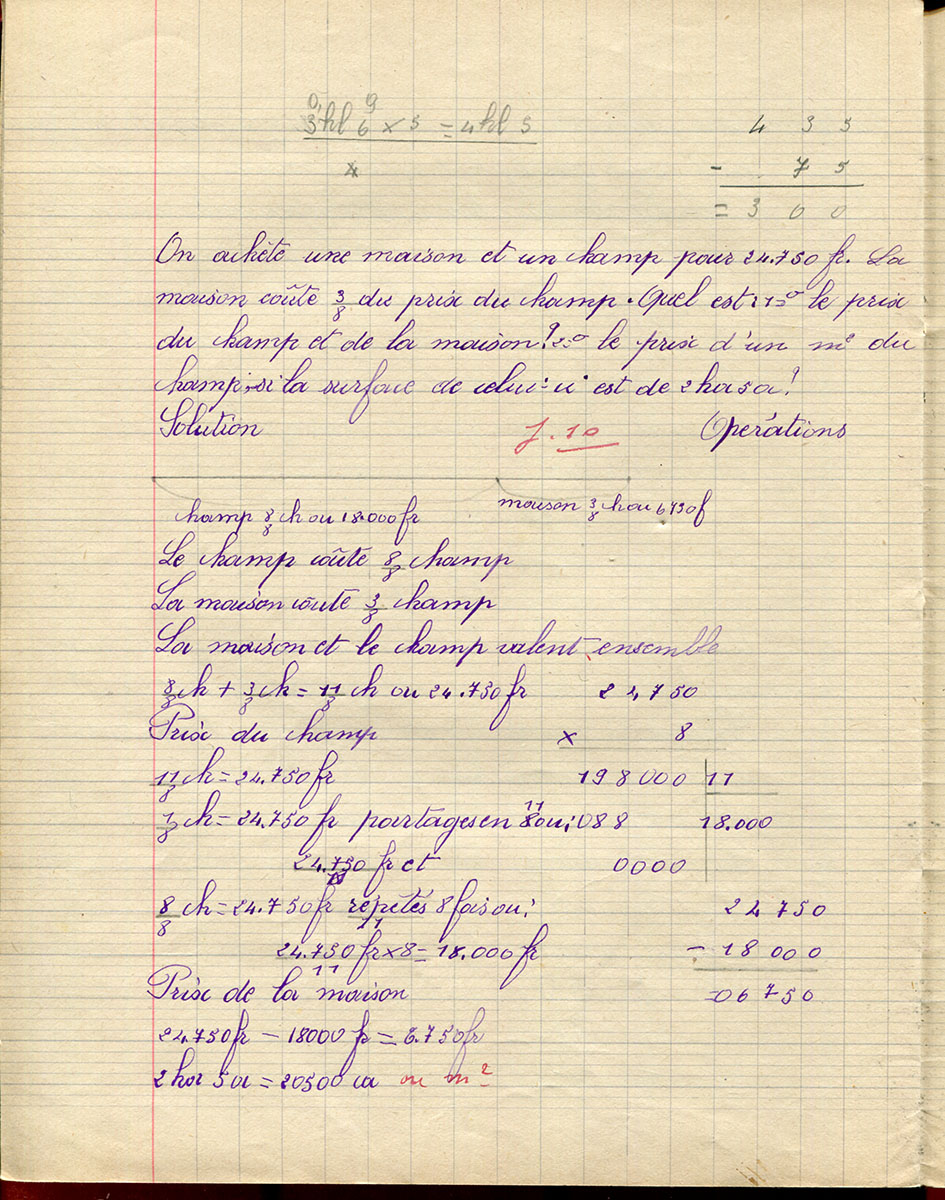 0, 9
3 hl 6 × 5 = 4 hl 5
4
4 3 5
- 7 5
= 3 6 0
On achète une maison et un champ pour 24.750 fr. La
maison coûte 3/8 du prix du champ. Quel est: 1=° le prix
du champ et de la maison? 2=° le prix d'un m² du
champ, si la surface de celui-ci est de 2 ha 5 a?
Solution J. 10 Opérations
champ 8/8 ch ou 18.000 fr maison 3/8 ch ou 6750 f
Le champ coûte 8/8 champ
La maison coûte 3/8 champ
La maison et le champ valent ensemble
8/8 ch + 3/8 ch = 11/8 ch ou 24.750 fr 2 4 7 5 0
Prix du champ × 8
11/8 ch = 24.750 fr 198000 | 11
1/8 ch = 24.750 fr partagés en 11 ou: 088 18.000
24.750 fr et 0000
11
8/8 ch = 24.750 fr répétés 8 fois ou: 24750
11
24.750 fr × 8 = 18.000 fr - 18 000
11
Prix de la maison = 06750
24.750 fr - 18000 fr = 6.750 fr
2 ha 5 a = 20500 ca ou m²